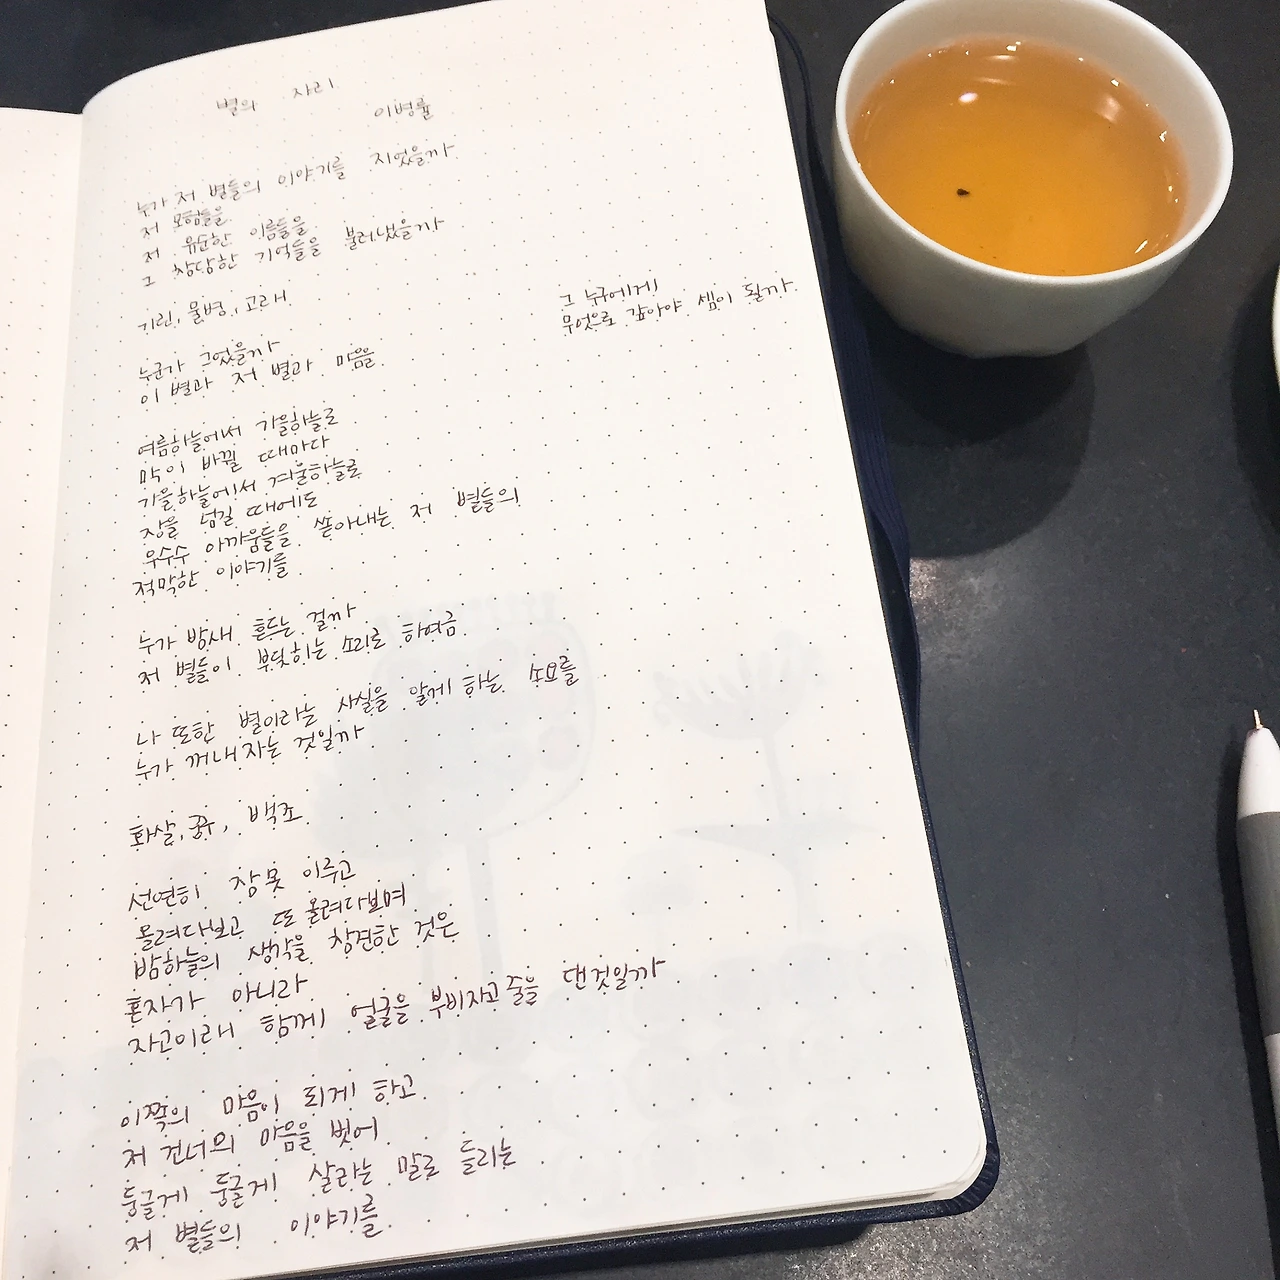 별의 자리
이병률
누가 저 별들의 이야기를 지었을까
저 모험들을
저 유순한 이름들을
그 창당한 기억들을 불러냈을까
기린, 물병, 고래
누군가 그었을까
이 별과 저 별과 마음을
여름하늘에서 가을하늘로
막이 바뀔 때마다
가을하늘에서 겨울하늘로
장을 넘길 때에도
우수수 아까움들을 쏟아내는 저 별들의
적막한 이야기를
누가 밤새 흔드는 걸까
저 별들이 부딪히는 소리로 하여금
나 또한 별이라는 사실을 알게 하는 소요를
누가 꺼내자는 것일까
화살, 공수, 백조
선연히 잠 못 이루고
올려다보고 또 올려다보며
밤하늘의 생각을 참견한 것은
혼자가 아니라
자고이래 함께 얼굴을 부비자고 줄을 댄것일까
이쪽의 마음이 되게 하고
저 건너의 마음을 벗어
둥글게 둥글게 살라는 말로 들리는
저 별들의 이야기를
그 누구에게
무엇으로 갚아야 셈이 될까